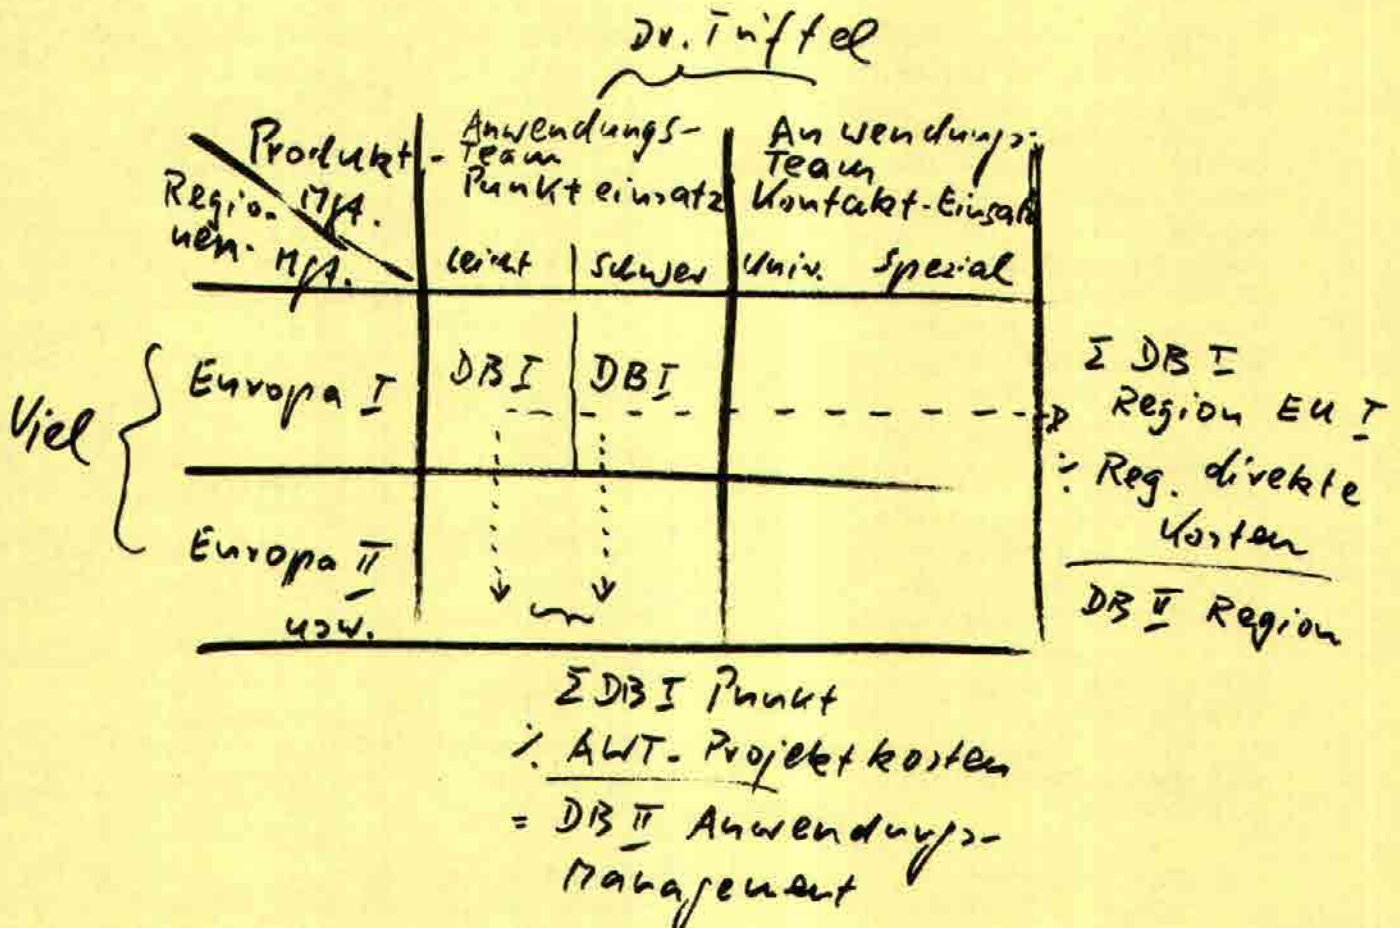 Dr. Triffel
Produkt-
Mgt.
Regio-
nen-Mgt.
Anwendungs-
Team
Punkteinsatz
Anwendungs-
Team
Kontakt-Einsatz
leicht | schwer
Univ. Spezial
Viel
Europa I
DB I
DB I
Europa II
usw.
Σ DB I
Region EU I
⁒ Reg. direkte
Kosten
DB II Region
Σ DB I Punkt
⁒ AWT-Projektkosten
= DB II Anwendungs-
Management